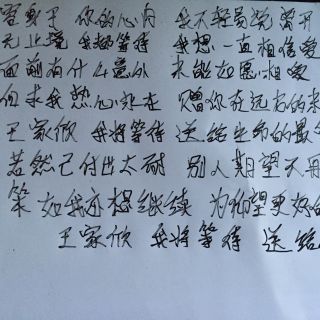 你的心内 我不轻易说离开
无止境 我将等待 我想一直相信爱
面前有什么意外 未能如愿相爱
但求我热心永在 赠你在远方的
王家欣 我将等待 送给生命的最
若然已付出太耐 别人期望不再
笨 如我亦想继续 为仰望更好的
王家欣 我将等待 送给